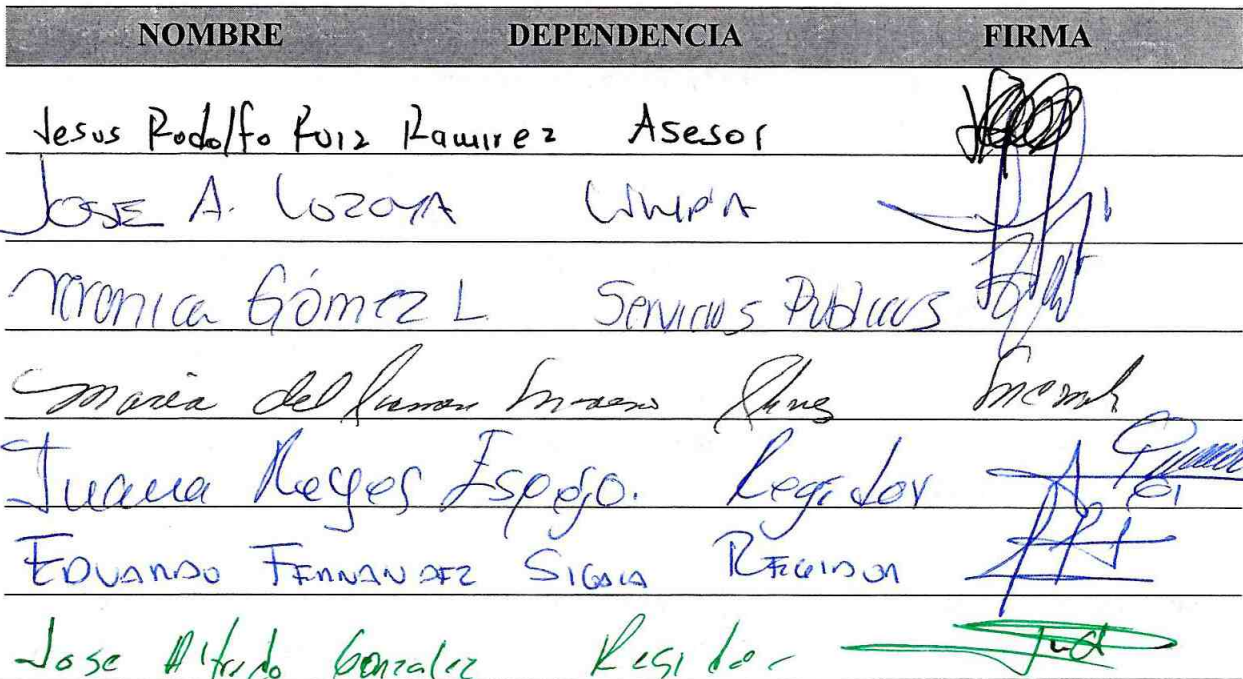 NOMBRE DEPENDENCIA FIRMA
Jesus Rodolfo Ruiz Ramirez Asesor
JOSE A. LOZOYA
Veronica Gómez L. Servicios Publicos
Maria del
Juana Reyes Espejo. Regidor
EDUARDO FERNANDEZ SIGALA REGIDOR
Jose Alfredo Gonzalez Regidor